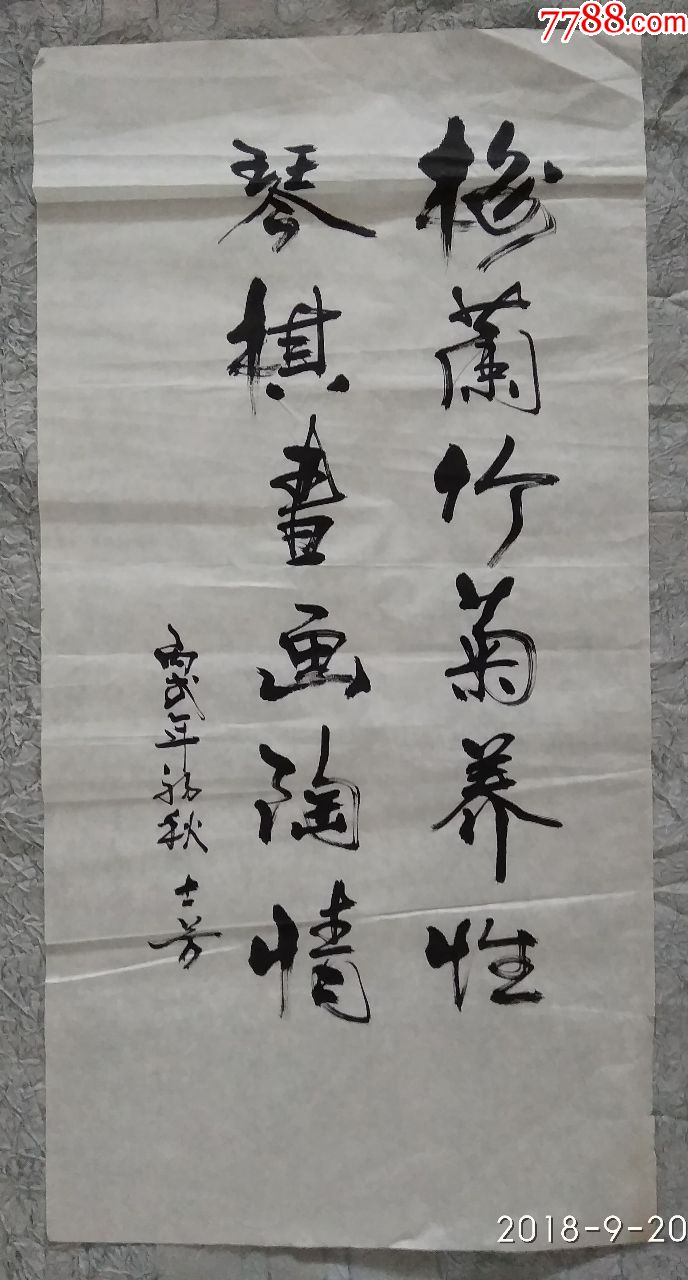 7788.com
梅蘭竹菊养性
琴棋書画陶情
丙戌年初秋 士芳
2018-9-20